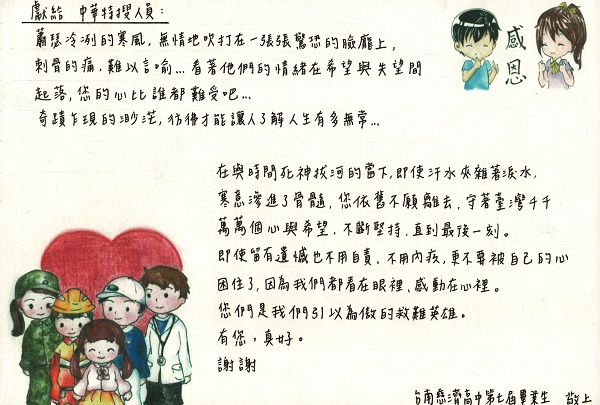 獻給 中華特搜人員：
感恩
蕭瑟冷冽的寒風，無情地吹打在一張張驚恐的臉龐上，
刺骨的痛，難以言喻…看著他們的情緒在希望與失望間
起落，您的心比誰都難受吧…
奇蹟乍現的渺茫，彷彿才能讓人了解人生有多無常…
在與時間死神拔河的當下，即使汗水夾雜著淚水，
寒意滲進了骨髓，您依舊不願離去，守著臺灣千千
萬萬個心與希望，不斷堅持，直到最後一刻。
即使留有遺憾也不用自責、不用內疚，更不要被自己的心
困住了，因為我們都看在眼裡、感動在心裡。
您們是我們引以為傲的救難英雄。
有您，真好。
謝謝
台南慈濟高中第七屆畢業生 敬上